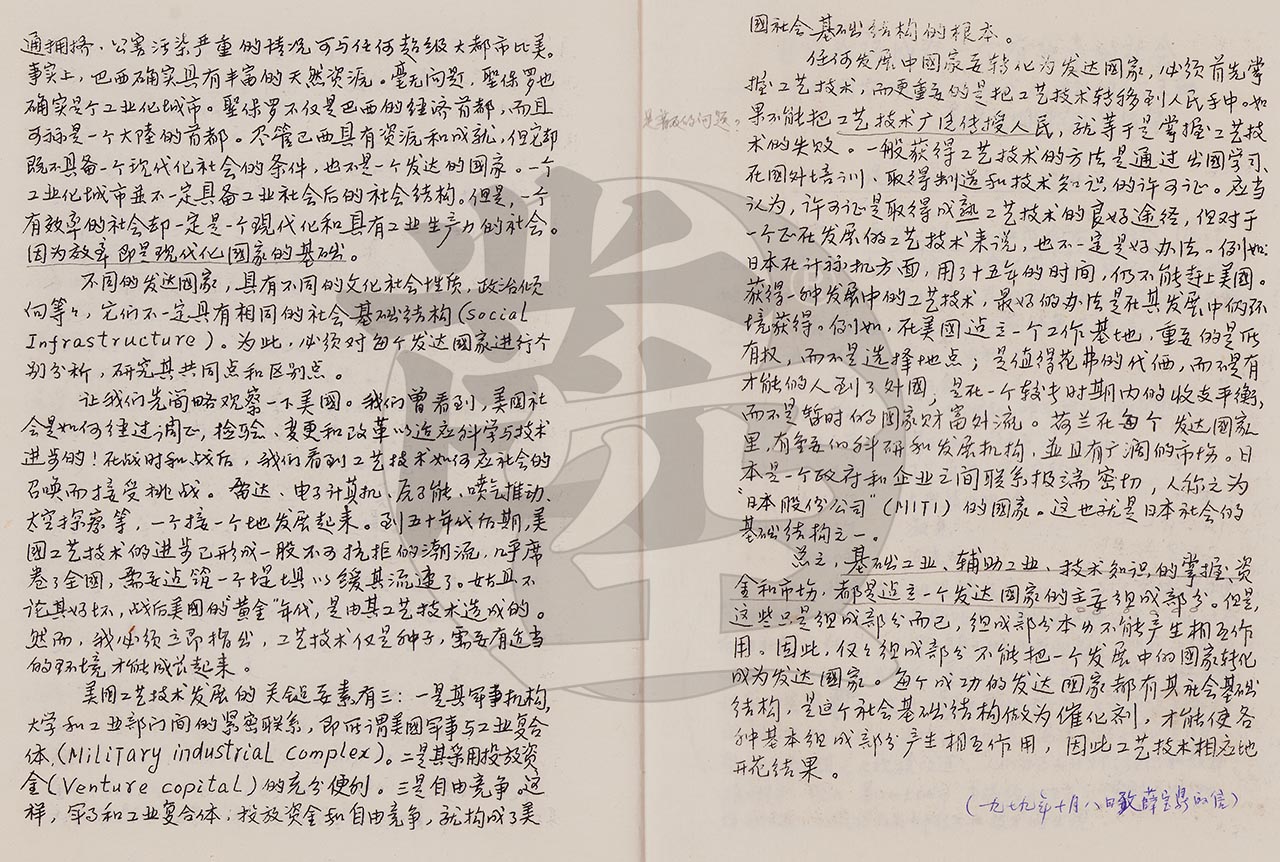 通拥挤、公害污染严重的情况可与任何超级大都市比美。
事实上，巴西确实具有丰富的天然资源。毫无问题，聖保罗也
确实是个工业化城市。聖保罗不仅是巴西的经济首都，而且
可称是一个大陸的首都。尽管巴西具有资源和成就，但它却
既不具备一个现代化社会的条件，也不是一个发达的國家。一个
工业化城市並不一定具备工业社会后的社会结构。但是，一个
有效率的社会却一定是一个现代化和具有工业生产力的社会。
因为效率即是现代化國家的基础。
不同的发达國家，具有不同的文化社会性质，政治倾
向等々，它们不一定具有相同的社会基础结构(Social
Infrastructure)。为此，必须对每个发达國家进行个
别分析，研究其共同点和区别点。
让我们先简略观察一下美國。我们曾看到，美國社
会是如何经过调正，检验、变更和改革以适应科学与技术
进步的！在战时和战后，我们看到工艺技术如何应社会的
召唤而接受挑战。雷达、电子计算机、原子能、喷气推动、
太空探察等，一个接一个地发展起来。到五十年代后期，美
國工艺技术的进步已形成一股不可抗拒的潮流，几乎席
卷了全國，需要造筑一个堤堤以缓其流速了。姑且不
论其好坏，战后美國的"黄金"年代，是由其工艺技术造成的。
然而，我必须立即指出，工艺技术仅是种子，需要有适当
的环境才能成长起来。
美國工艺技术发展的关键要素有三：一是其軍事机构，
大学和工业部门间的紧密联系，即所谓美國军事与工业复合
体，(Military industrial complex)。二是其采用投放资
金(Venture copital)的充分便利。三是自由竞争。这
样，军事和工业复合体；投放资金和自由竞争，就构成了美
國社会基础结构的根本。
任何发展中國家要转化为发达國家，必须首先掌
握工艺技术，而更重要的是把工艺技术转移到人民手中。如
果不能把工艺技术广泛传授人民，就等于是掌握工艺技
是的问题。
术的失败。一般获得工艺技术的方法是通过出國学习、
在國外培训、取得制造和技术知识的许可证。应当
认为，许可证是取得成熟工艺技术的良好途径，但对于
一个正在发展的工艺技术来说，也不一定是好办法。例如：
日本在计祘机方面，用了十五年的时间，仍不能赶上美國。
获得一种发展中的工艺技术，最好的办法是在其发展中的环
境获得。例如，在美國造立一个工作基地，重要的是所
有权，而不是选择地点；是值得花费的代価，而不是有
才能的人到了外國，是在一个较长时期内的收支平衡，
而不是暂时的國家财富外流。荷兰在每个发达國家
里，有重要的科研和发展机构，並且有广阔的市场。日
本是一个政府和企业之间联系极端密切，人称之为
"日本股份公司"(MITI)的國家。这也就是日本社会的
基础结构之一。
总之，基础工业、辅助工业、技术知识的掌握、资
金和市场，都是造立一个发达國家的主要组成部分。但是，
这些只是组成部分而已，组成部分本身不能产生相互作
用。因此，仅々组成部分不能把一个发展中的國家转化
成为发达國家。每个成功的发达國家都有其社会基础
结构，是这个社会基础结构做为催化剂，才能使各
种基本组成部分产生相互作用，因此工艺技术相应地
开花结果。
(一九七九年十月八日致薛宝鼎的信)